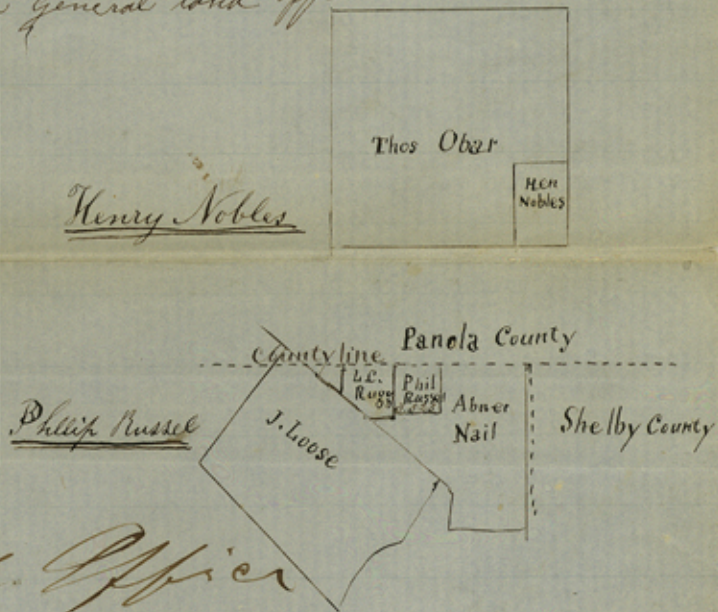 General land
Thos Obar
Hen
Nobles
Henry Nobles
Panola County
County line
L.L.
Phil
Russel
Abner
Nail
Shelby County
J. Loose
Phllip Russel
Office